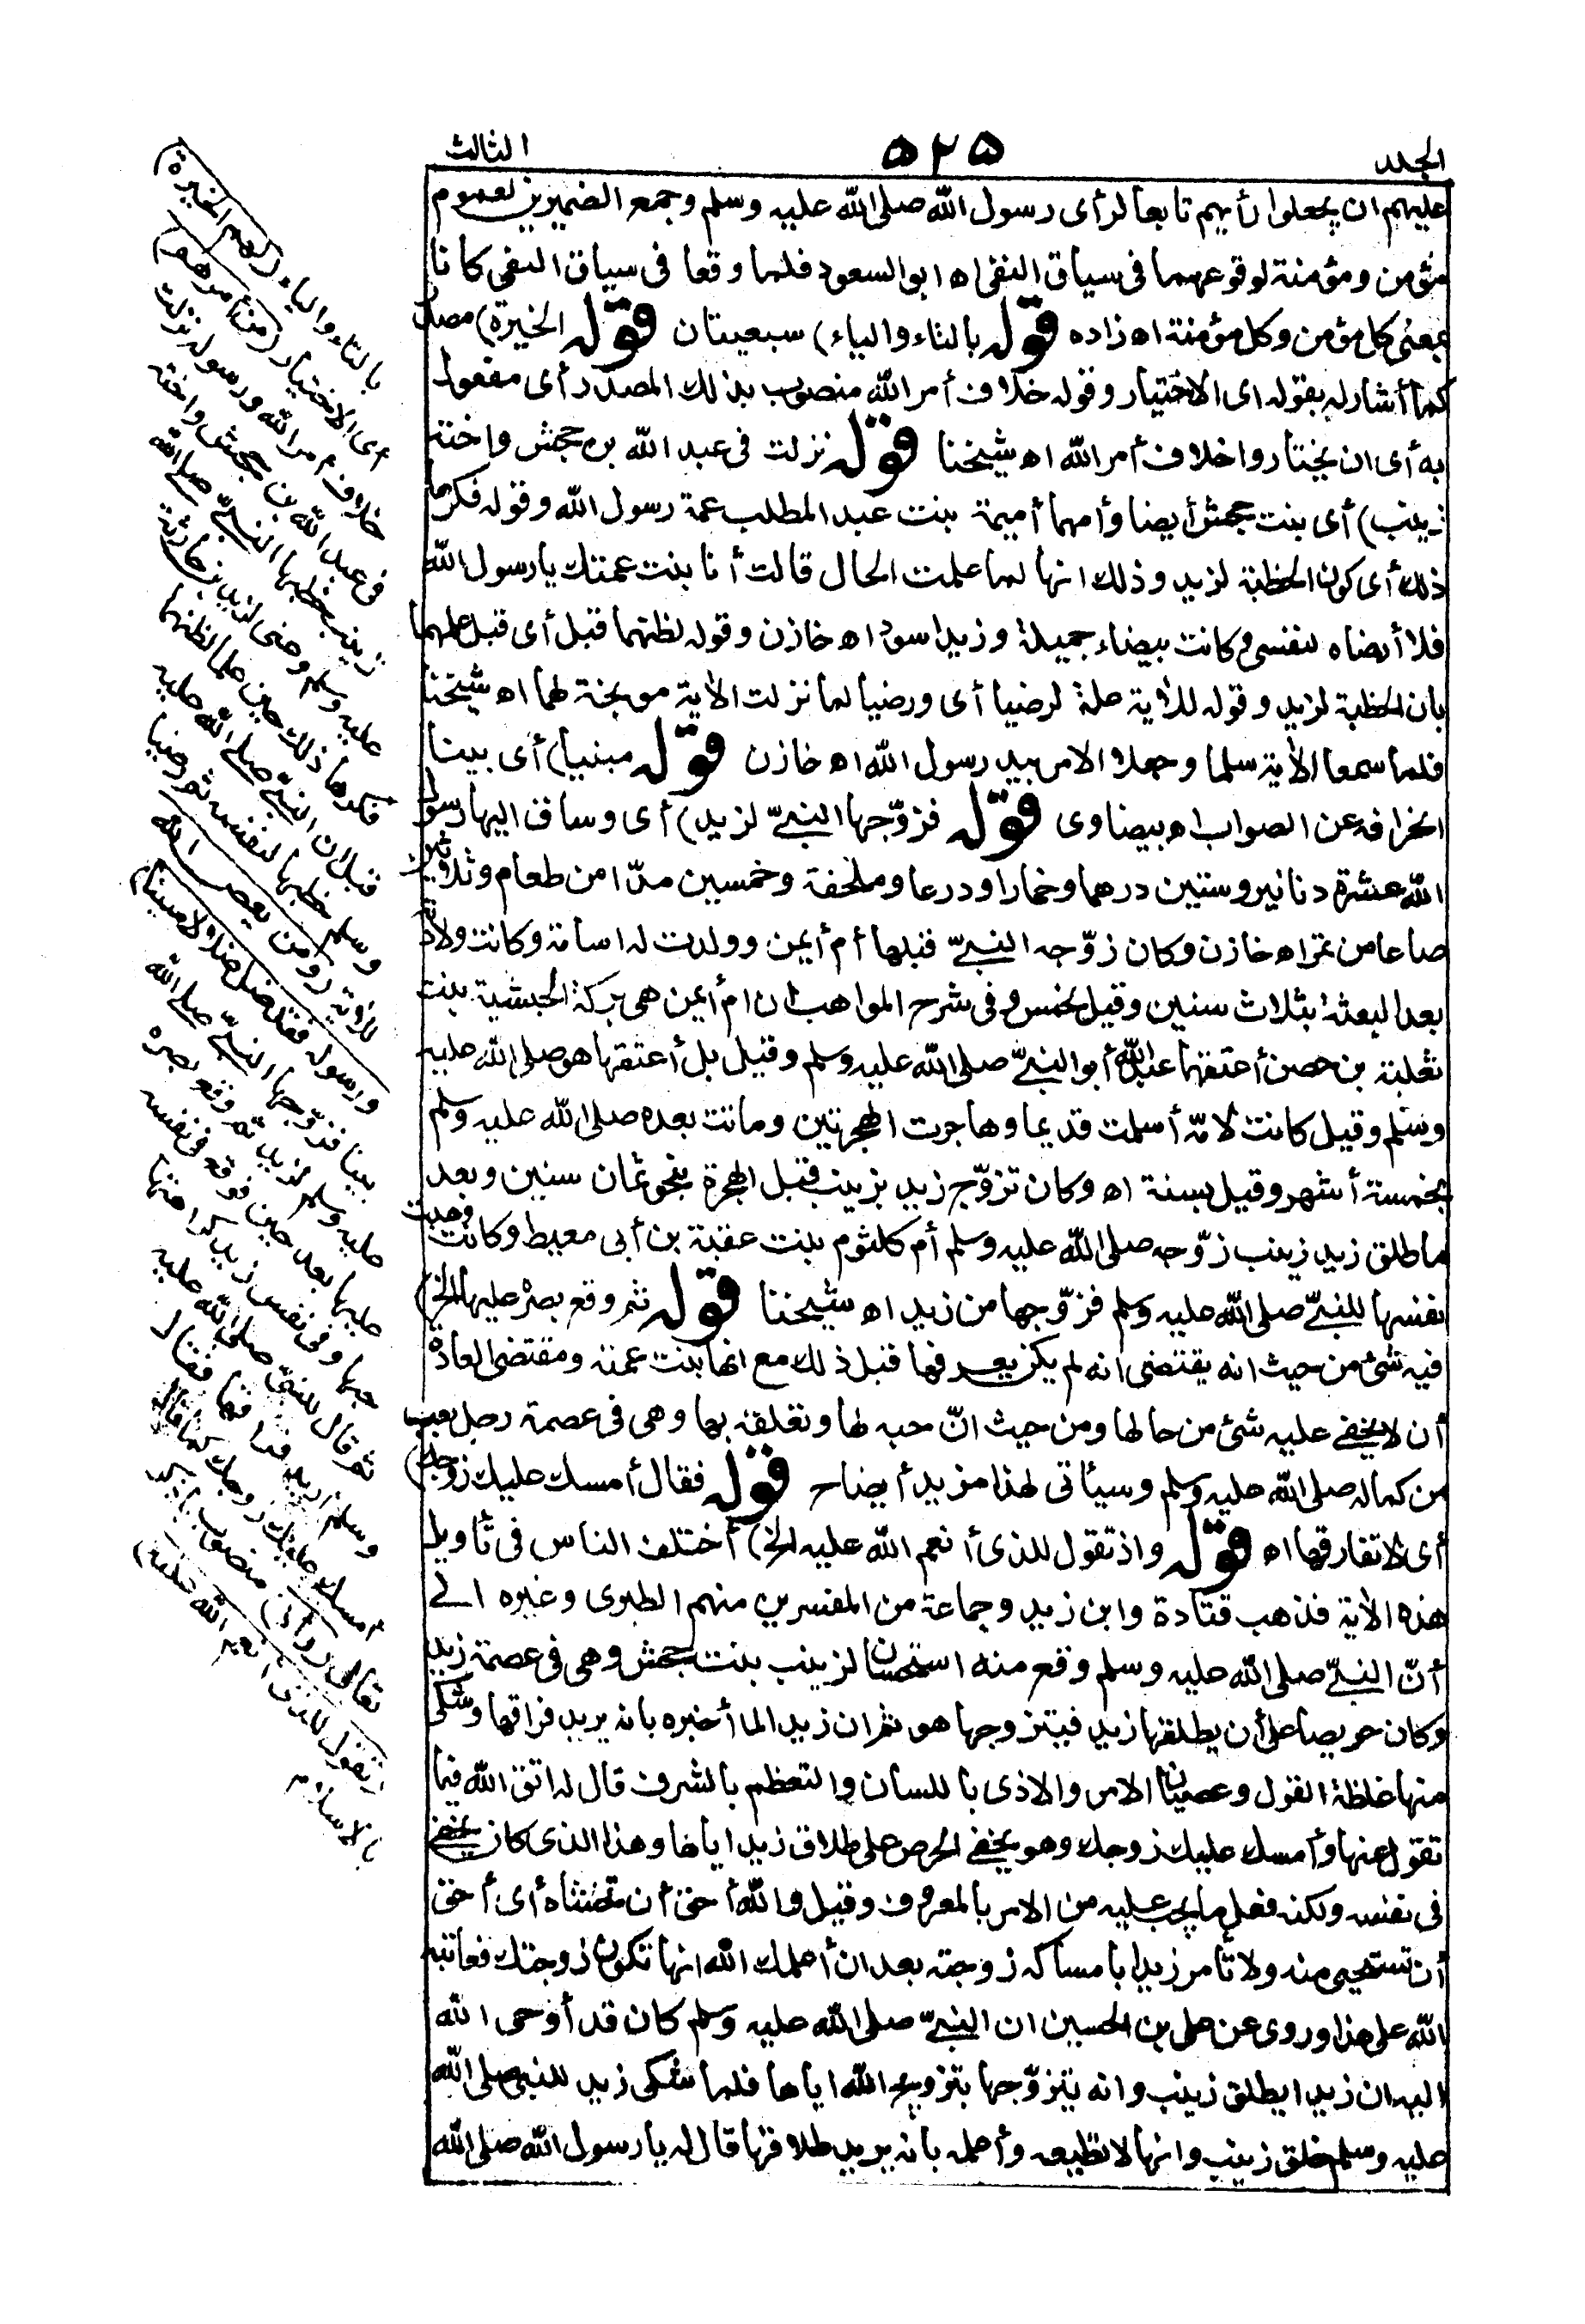 الجلد
٥٢٥
الثالث
عليهم ان يجعلوا رأيهم تابعا لرأى رسول الله صلى الله عليه وسلم وجمع الضميرين لعموم
مؤمن ومؤمنة لوقوعهما فى سياق النفى اه ابو السعود فلما وقعا فى سياق النفى كانا
بمعنى كل مؤمن وكل مؤمنة اه زاده قوله بالتاء والياء) سبعيتان قوله الخيرة) مصدر
كما أشار له بقوله اى الاختيار وقوله خلاف أمر الله منصوب بذلك المصدر أى مفعول
به أى ان يختاروا خلاف أمر الله اه شيخنا قوله نزلت فى عبد الله بن جحش واخته
زينب) أى بنت جحش أيضا وأمهما أميمة بنت عبد المطلب عمة رسول الله وقوله فكرها
ذلك أى كون الخطبة لزيد وذلك انها لما علمت الحال قالت أنا بنت عمتك يا رسول الله
فلا أرضاه لنفسى وكانت بيضاء جميلة وزيد اسود اه خازن وقوله لظنهما قبل أى قبل علمهما
بان الخطبة لزيد وقوله للآية علة لرضيا أى ورضيا لما نزلت الآية موبخة لهما اه شيخنا
فلما سمعا الآية سلما وجعلا الامر بيد رسول الله اه خازن قوله مبنيا) أى بينا
انحرافه عن الصواب اه بيضاوى قوله فزوّجها النبىّ لزيد) أى وساق اليها رسول
الله عشرة دنانير وستين درهما وخمارا ودرعا وملحفة وخمسين مدّا من طعام وثلاثين
صاعا من تمر اه خازن وكان زوّجه النبىّ قبلها أم أيمن وولدت له اسامة وكانت ولادته
بعد البعثة بثلاث سنين وقيل بخمس وفى شرح المواهب ان ام أيمن هى بركة الحبشية بنت
ثعلبة بن حصن أعتقها عبد الله أبو النبىّ صلى الله عليه وسلم وقيل بل أعتقها هو صلى الله عليه
وسلم وقيل كانت لامّه أسلمت قديما وهاجرت الهجرتين وماتت بعده صلى الله عليه وسلم
بخمسة أشهر وقيل بسنة اه وكان تزوّج زيد بزينب قبل الهجرة بنحو ثمان سنين وبعد
ما طلق زيد زينب زوّجه صلى الله عليه وسلم أم كلثوم بنت عقبة بن أبى معيط وكانت وهبت
نفسها للنبىّ صلى الله عليه وسلم فزوّجها من زيد اه شيخنا قوله ثم وقع بصره عليها الخ)
فيه شئ من حيث انه يقتضى انه لم يكن يعرفها قبل ذلك مع انها بنت عمته ومقتضى العادة
أن لا يخفى عليه شئ من حالها ومن حيث انّ حبه لها وتعلقه بها وهى فى عصمة رجل بعيد
من كماله صلى الله عليه وسلم وسيأتى لهذا مزيد أيضاح قوله فقال أمسك عليك زوجك)
أى لا تفارقها اه قوله واذ تقول للذى أنعم الله عليه الخ) أختلف الناس فى تأويل
هذه الآية فذهب قتادة وابن زيد وجماعة من المفسرين منهم الطبرى وغيره الى
أنّ النبىّ صلى الله عليه وسلم وقع منه استحسان لزينب بنت جحش وهى فى عصمة زيد
وكان حريصا على أن يطلقها زيد فيتزوجها هو ثم ان زيد الما أخبره بانه يريد فراقها وشكى
منها غلظة القول وعصيان الامر والاذى باللسان والتعظم بالشرف قال له اتق الله فيما
تقول عنها وأمسك عليك زوجك وهو يخفى الحرص على طلاق زيد اياها وهذا الذى كان يخفى
فى نفسه ولكنه فعل ما يجب عليه من الامر بالمعروف وقيل والله أحق أن تخشاه أى أحق
أن تستحيى منه ولا تأمر زيدا بامساكه زوجته بعد ان أعلمك الله انها تكون زوجتك فعاتبه
الله على هذا وروى عن على بن الحسين ان النبىّ صلى الله عليه وسلم كان قد أوحى الله
اليه ان زيدا يطلق زينب وانه يتزوّجها بتزويج الله اياها فلما شكى زيد للنبى صلى الله
عليه وسلم خلق زينب وانها لا تطيعه وأعلمه بانه يريد طلاقها قال له يا رسول الله صلى الله
بالتاء والياء (لهم الخيرة)
أى الاختيار (من أمرهم)
خلاف أمر الله ورسوله نزلت
فى عبد الله بن جحش واخته
زينب خطبها النبىّ صلى الله
عليه وسلم وعنى لزيد بن حارثة
فكرها ذلك حين علما لظنهما
قبل ان النبىّ صلى الله عليه
وسلم خطبها لنفسه ثم رضيا
للآية (ومن يعص الله
ورسوله فقد ضل ضلالا مبينا)
بينا فزوّجها النبىّ صلى الله
عليه وسلم لزيد ثم وقع بصره
عليها بعد حين فوقع فى نفسه
حبها وفى نفس زيد كراهتها
ثم قال للنبى صلى الله عليه
وسلم أريد فراقها فقال
أمسك عليك زوجك كما قال
تعالى (واذ) منصوب باذكر
(تقول للذى أنعم الله عليه)
بالاسلام